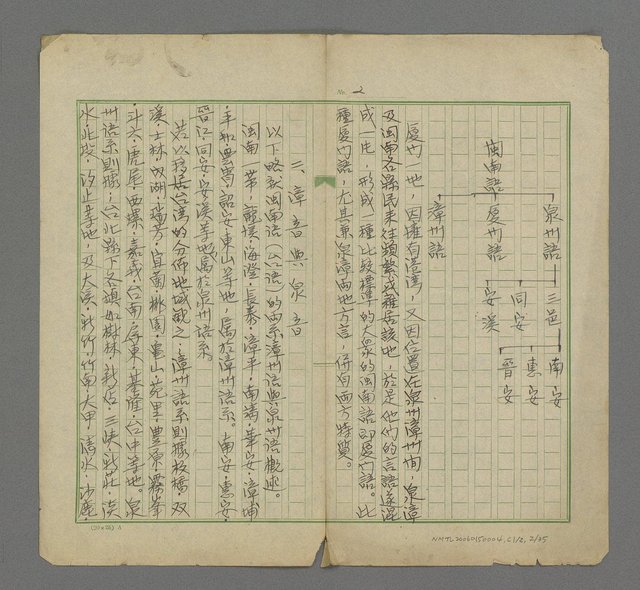 No. 2
泉州語 三邑 南安
惠安
晉安
同安
安溪
閩南語 廈門語
漳州語
廈門一地，因擁有港湾，又因位置在泉州漳州間，泉漳
及閩南各縣民來往頻繁或雜居該地，於是他們的言語遂混
成一店，形成一種比較標準的大衆的閩南語即廈門語。此
種廈門語，尤具東泉漳兩地方言，併自兩方特質。
三、漳音與泉音
以下略說閩南語（台語）的兩系漳州語與泉州語概述。
閩南一帶，龍溪·海澄·長泰·漳平·南靖·華安·漳埔
·平和·雲霄·詔安·東山等地，属於漳州語系。南安·惠安·
晉江·同安·安溪等地属於泉州語系
若以移居台湾的分佈地域觀之，漳州語系則據板橋·双
溪·士林·內湖·瑞芳·宜蘭·桃園·龜山·苑里·豐原·霧峯
·斗六·虎尾·西螺·嘉義·台南·屏東·基隆·台中等地。泉
州語系則據·台北縣下各鎮如樹林·新店·三峽·新莊·淡
水·北投·汐止等地，及大溪·新竹·竹南·大甲·清水·沙鹿·
(20×25) A
NMTL20060150004, C1/2, 2/35